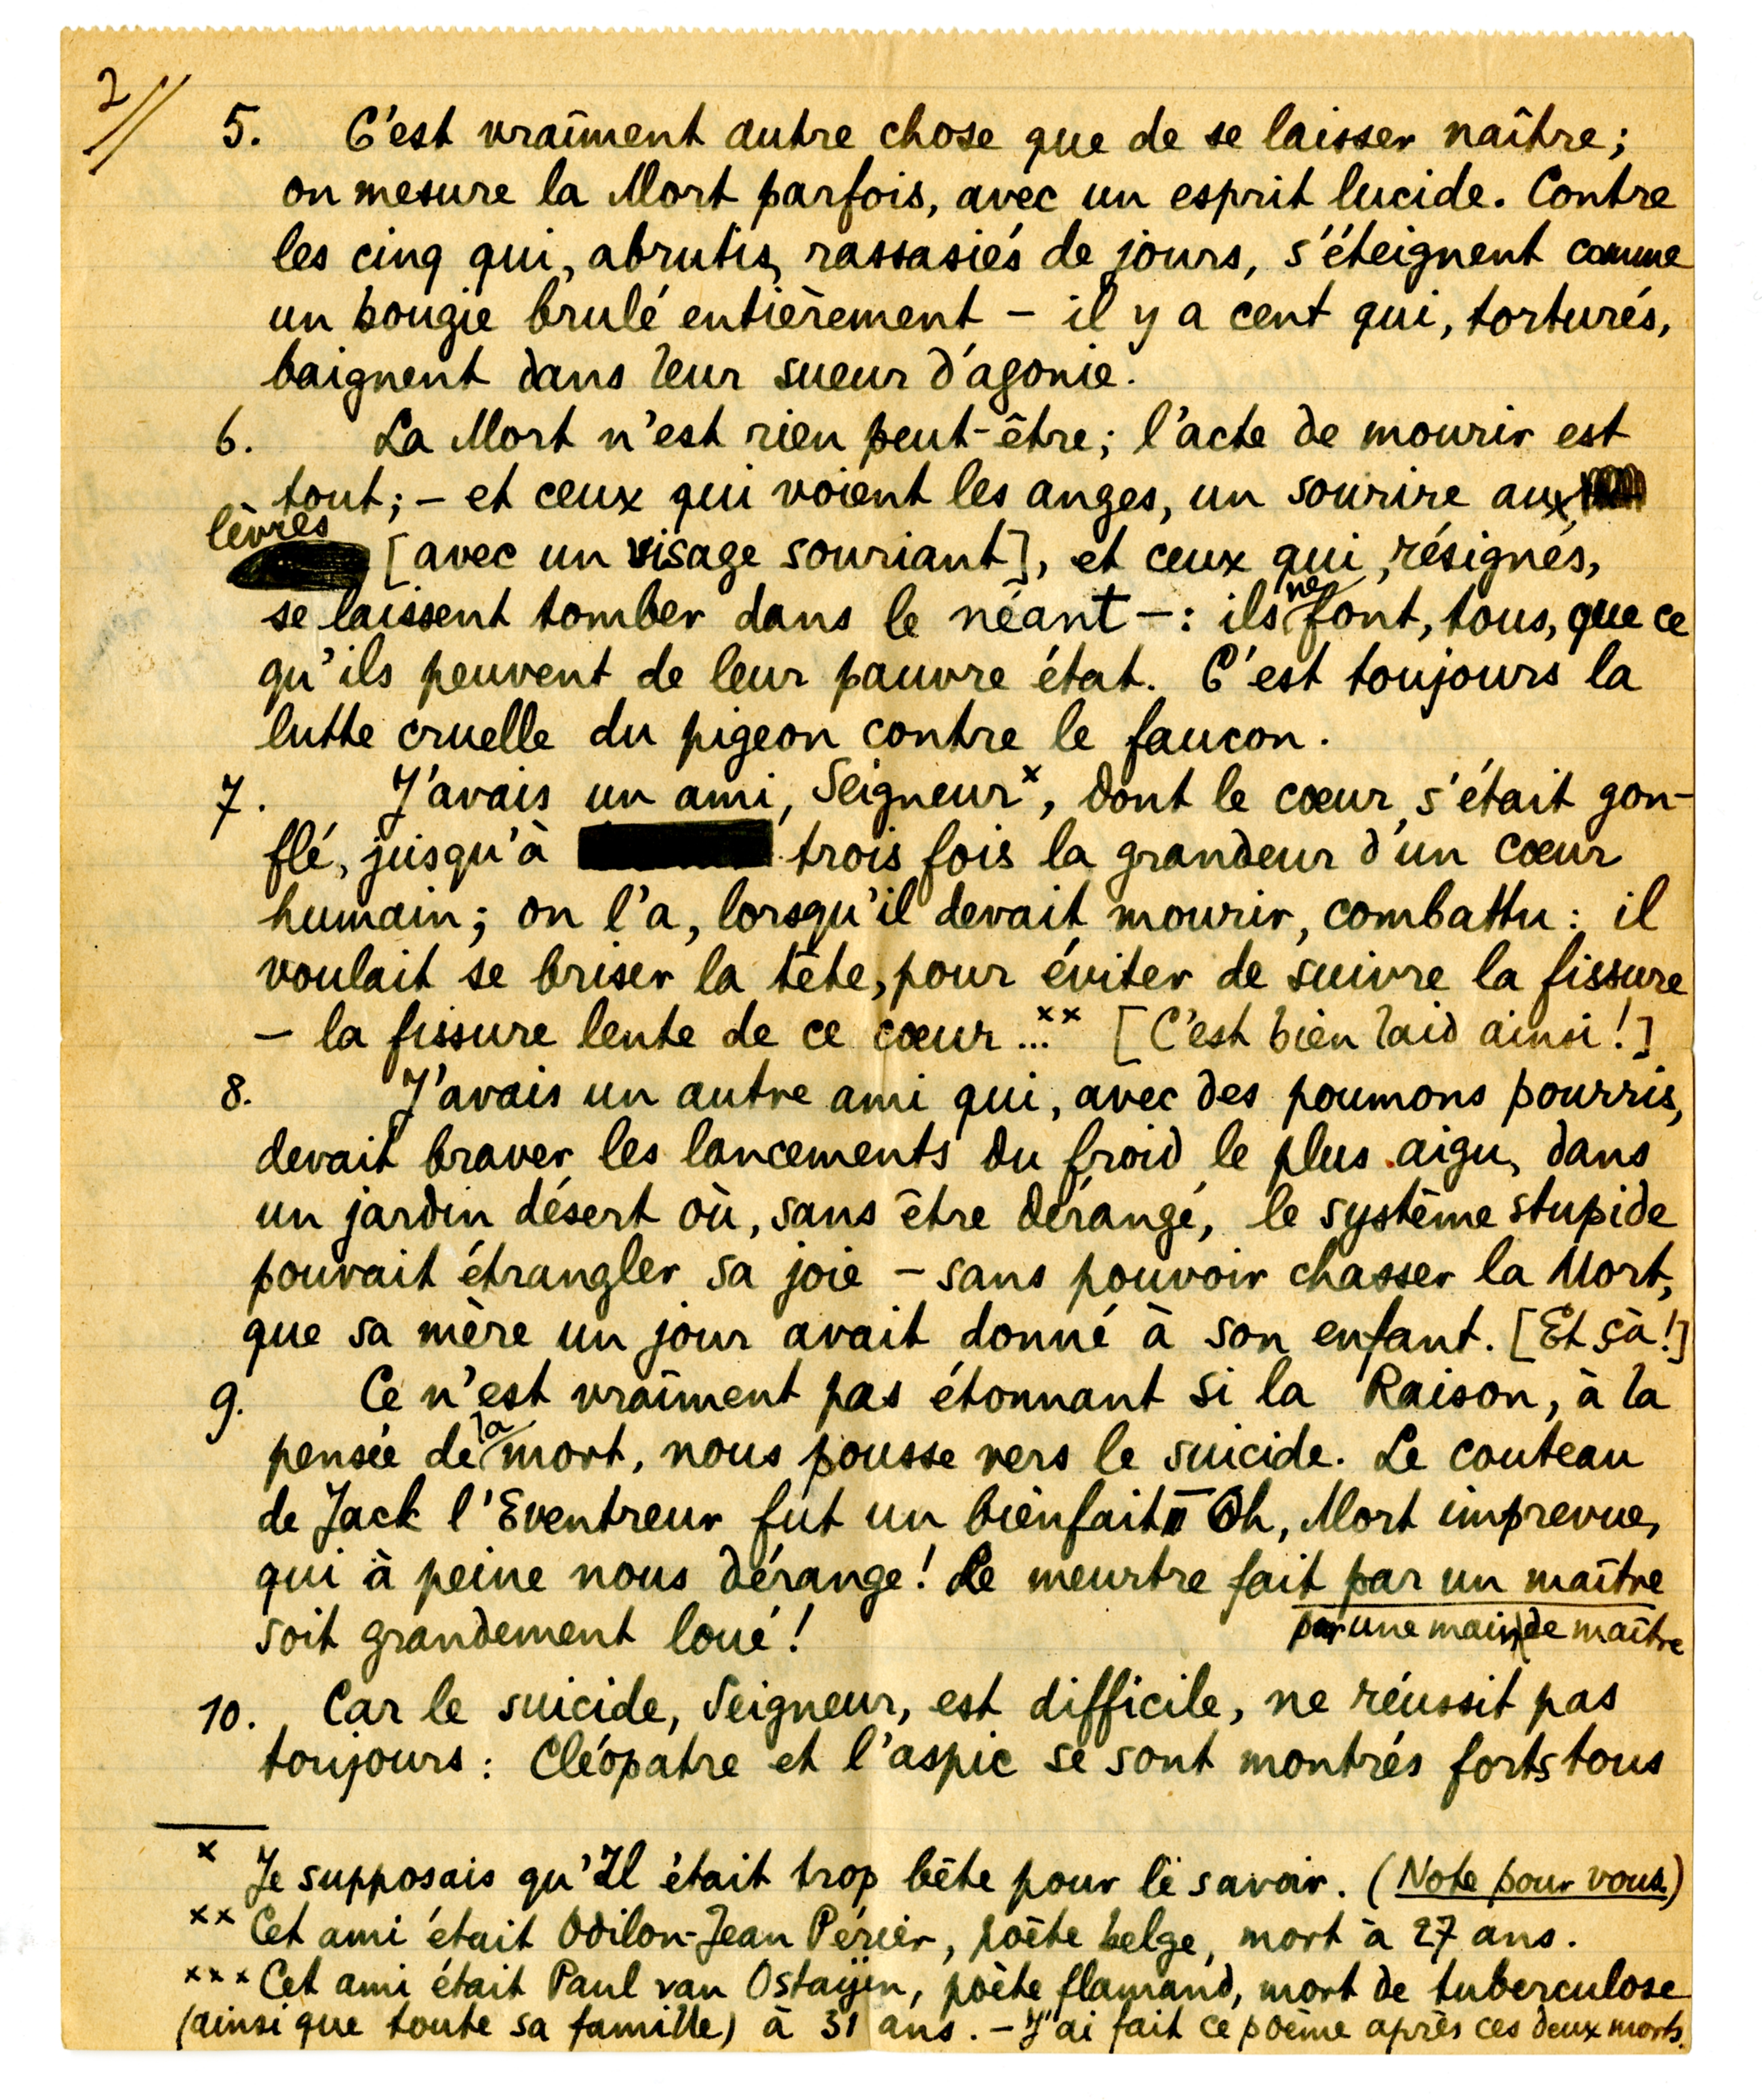 2//
5. C'est vraîment autre chose que de se laisser naître;
on mesure la Mort parfois, avec un esprit lucide. Contre
les cinq qui, abrutis, rassasiés de jours, s'éteignent comme
un bougie brulé entièrement – il y a cent qui, torturés,
baignent dans leur sueur d'agonie.
6. La Mort n'est rien peut-être; l'acte de mourir est
tout; – et ceux qui voient les anges, un sourire aux
lèvres
[avec un visage souriant], et ceux qui, résignés,
se laissent tomber dans le néant –: ils ne font, tous, que ce
qu'ils peuvent de leur pauvre état. C'est toujours la
lutte cruelle du pigeon contre le faucon.
7. J'avais un ami, Seigneur×, dont le cœur s'était gon-
flé, jusqu'à trois fois la grandeur d'un cœur
humain; on l'a, lorsqu'il devait mourir, combattu: il
voulait se briser la tête, pour éviter de suivre la fissure
– la fissure lente de ce cœur...×× [C'est bien laid ainsi!]
8. J'avais un autre ami qui, avec des poumons pourris,
devait braver les lancements du froid le plus aigu, dans
un jardin désert où, sans être dérangé, le système stupide
pouvait étrangler sa joie – sans pouvoir chasser la Mort,
que sa mère un jour avait donné à son enfant. [Et çà!]
9. Ce n'est vraîment pas étonnant si la Raison, à la
pensée de la mort, nous pousse vers le suicide. Le couteau
de Jack l'Eventreur fut un bienfait – Oh, Mort imprevue,
qui à peine nous dérange! Le meurtre fait par un maître
soit grandement loué! par une main de maître
10. Car le suicide, Seigneur, est difficile, ne réussit pas
toujours: Cléopatre et l'aspic se sont montrés forts tous
× Je supposais qu'Il était trop bête pour le savoir. (Note pour vous.)
×× Cet ami était Odilon-Jean Périer, poète belge, mort à 27 ans.
××× Cet ami était Paul van Ostaijen, poète flamand, mort de tuberculose
(ainsi que toute sa famille) à 31 ans. – J'ai fait ce poème après ces deux morts.